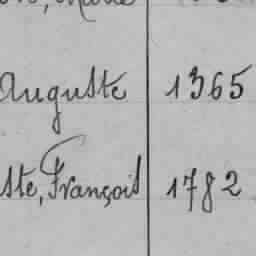 Auguste 1365
ste, François 1782